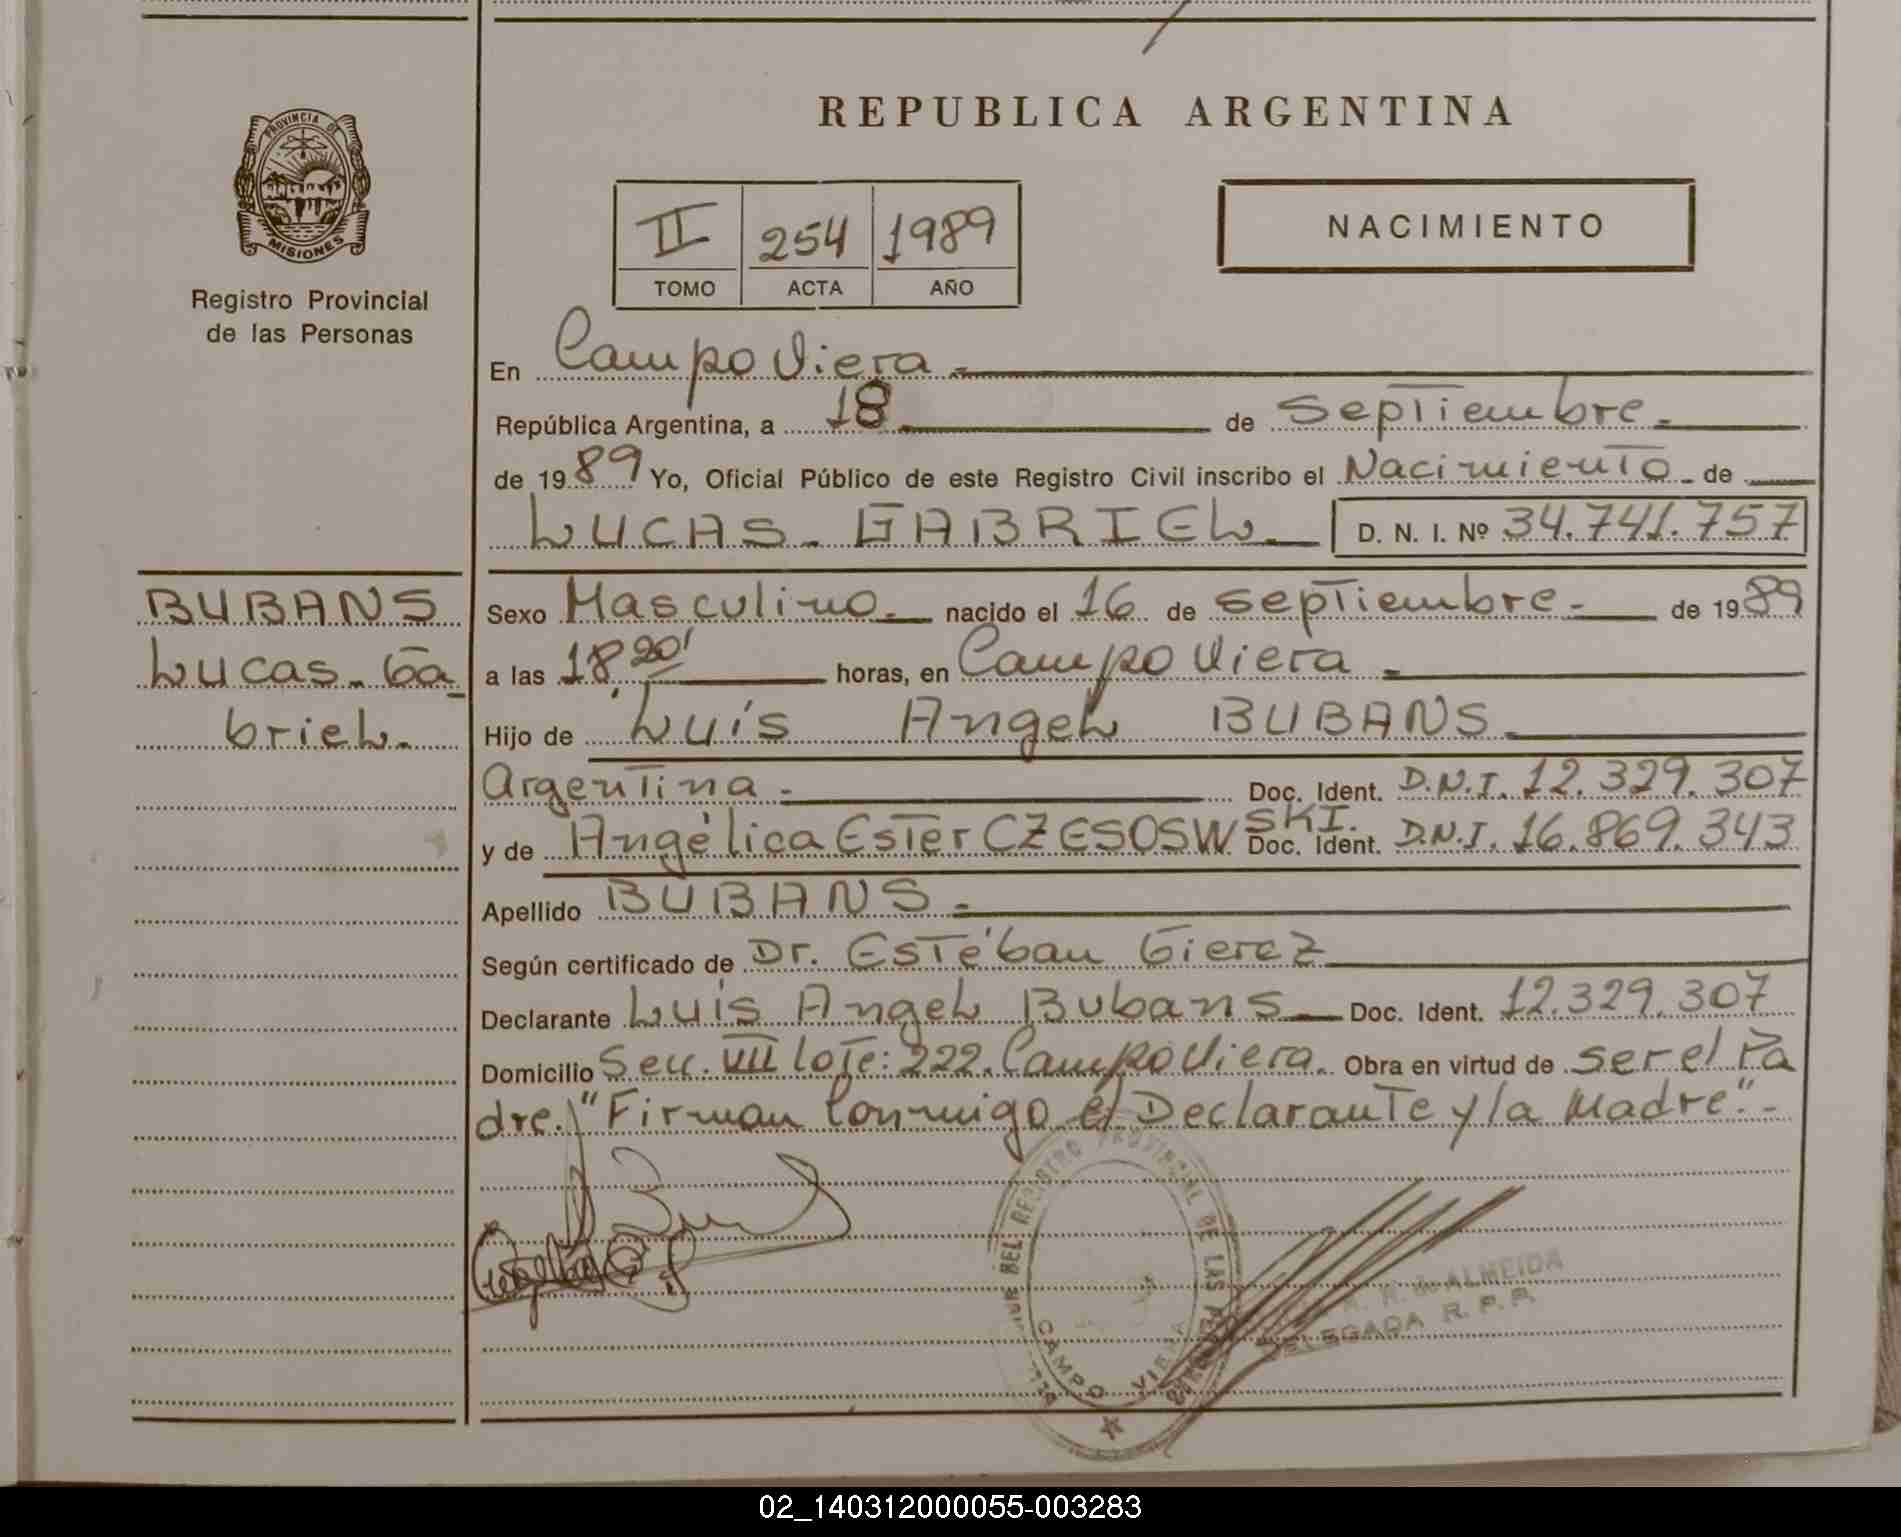 REPUBLICA ARGENTINA
PROVINCIA DE
MISIONES
Registro Provincial
de las Personas
II 254 1989
TOMO ACTA AÑO
NACIMIENTO
En Campo Viera.
República Argentina, a 18 de septiembre.
de 1989 Yo, Oficial Público de este Registro Civil inscribo el Nacimiento de
LUCAS. GABRIEL. D. N. I. Nº 34.741.757
BUBANS
Lucas. Ga
briel.
Sexo Masculino. nacido el 16 de septiembre. de 1989
a las 18,20' horas, en Campo Viera.
Hijo de Luís Angel BUBANS.
Argentina. Doc. Ident. D.N.I. 12.329.307
y de Angélica Ester CZESOSWSKI. Doc. Ident. D.N.I. 16.869.343
Apellido BUBANS.
Según certificado de Dr. Estéban Gierez
Declarante Luis Angel Bubans Doc. Ident. 12.329.307
Domicilio Secc. VII lote: 222. Campo Viera. Obra en virtud de ser el Pa
dre. "Firman Conmigo el Declarante y la Madre".-
REGISTRO PROVINCIAL DE LAS
CAMPO VIERA
de ALMEIDA
DELEGADA R. P. P.
02_140312000055-003283